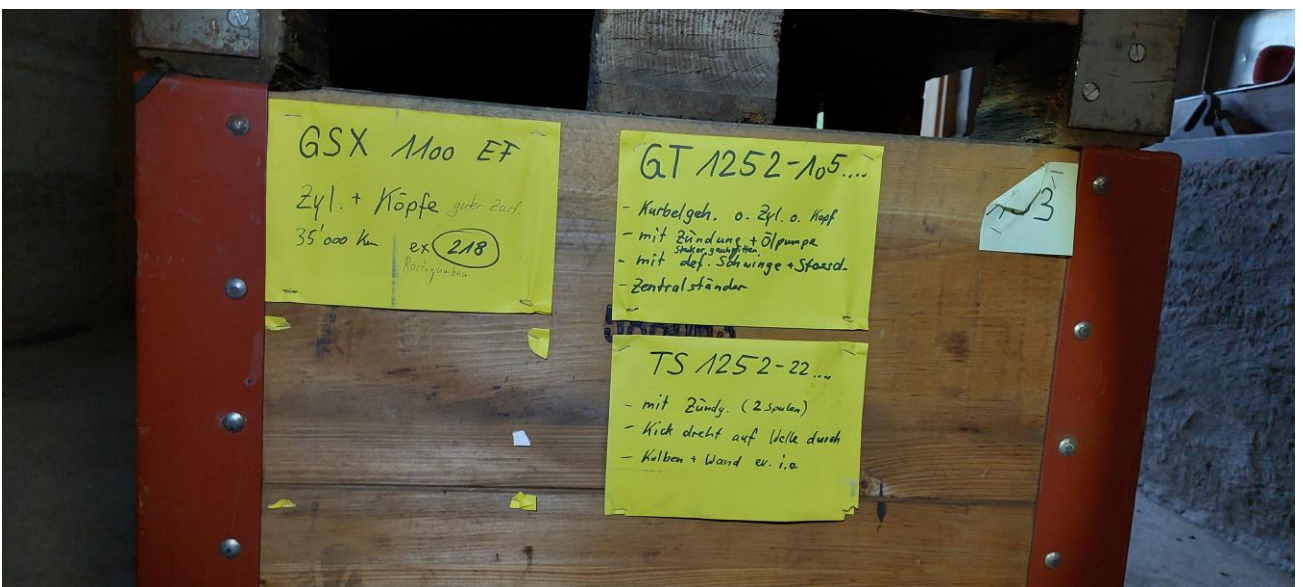 GSX 1100 EF
Zyl. + Köpfe guter Zust.
35'000 Km ex 218
Racingumbau
GT 1252-105....
- Kurbelgeh. o. Zyl. o. Kopf
- mit Zündung + Ölpumpe
Stecker geschnitten
- mit def. Schwinge + Stossd.
- Zentralständer
TS 1252-22....
- mit Zündg. (2 Spulen)
- Kick dreht auf Welle durch
- Kolben + Wand ev. i.o
3